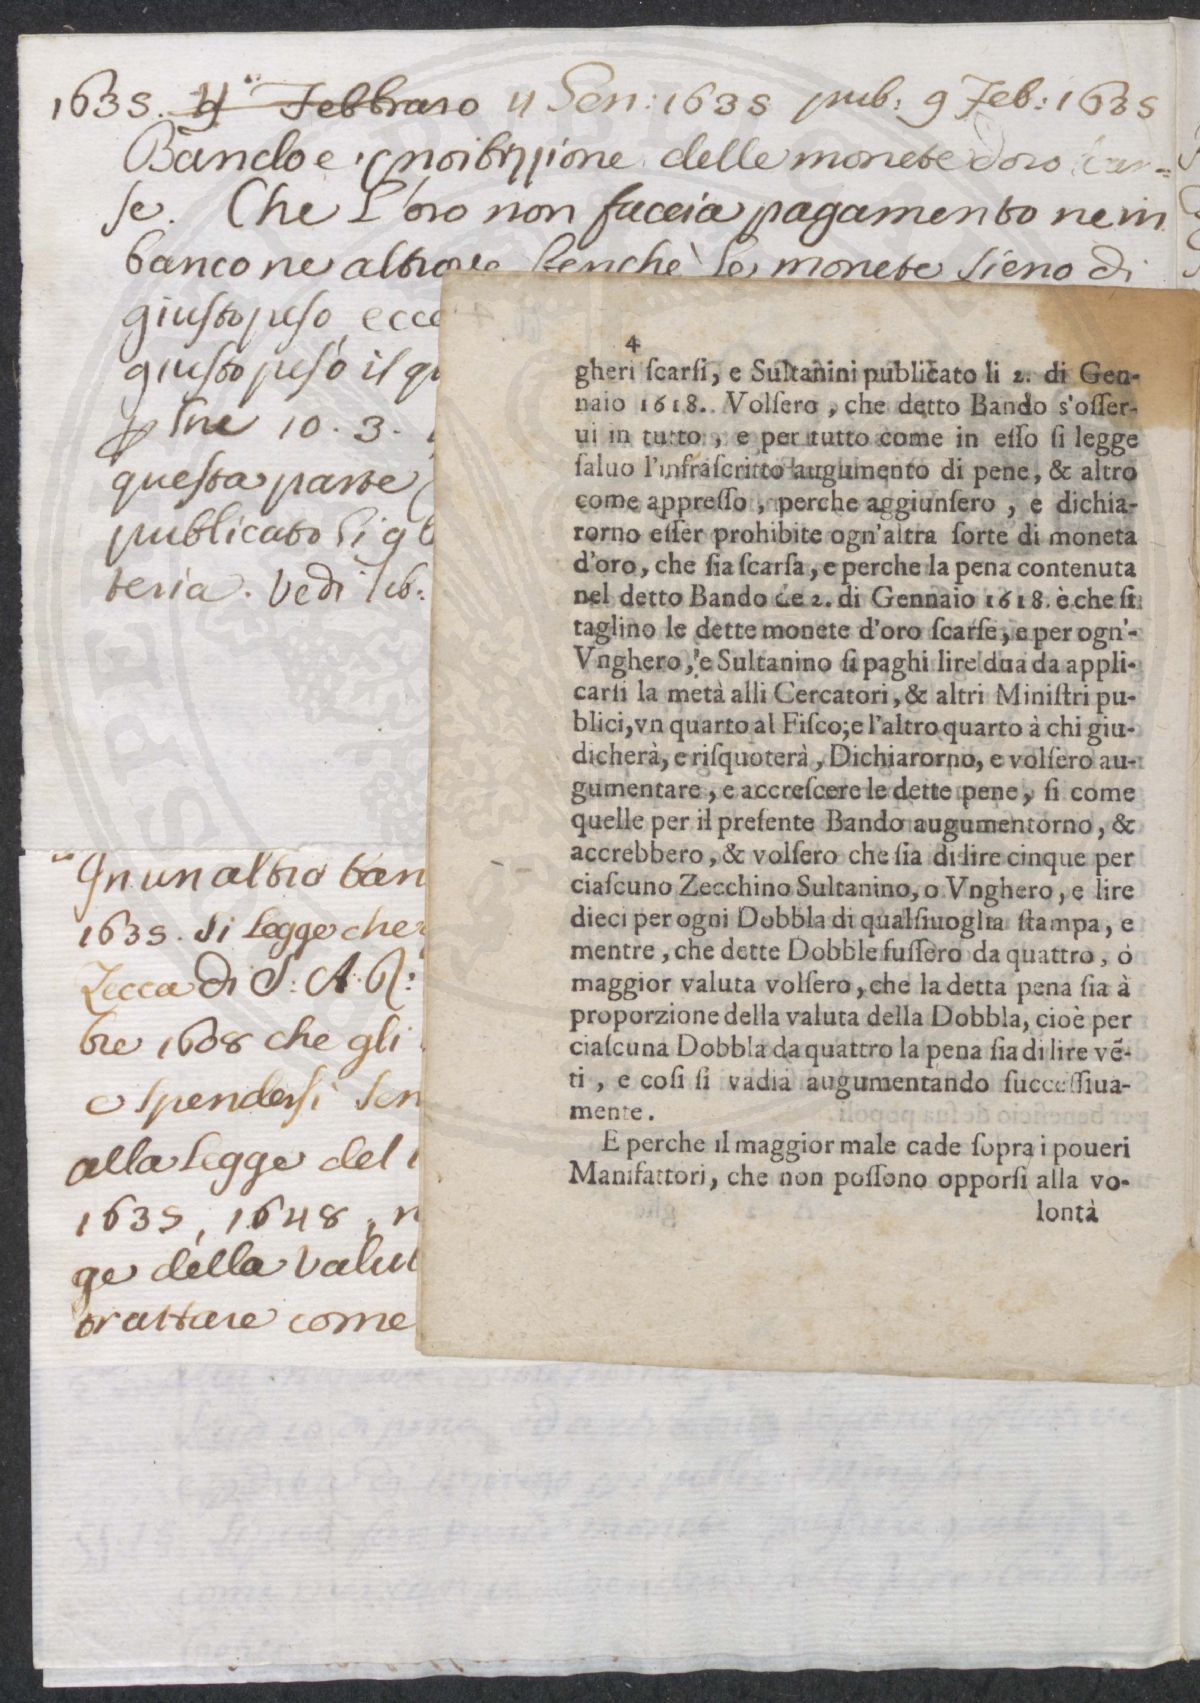 1635. 4 Febbraro 11 Gen: 1635 pub: 9 Feb: 1635
Bando e proibizzione delle monete d'oro scar=
se. Che L'oro non faccia pagamento ne in
banco ne altrove benchè le monete sieno di
giusto peso ecce
giusto peso il qu
10. 3.
questa parte
publicato li 9
teria. Vedi lib:
In un altro ban
1635. si legge che
Zecca di S: A. R:
bre 1608 che gli
e spendersi sen
alla Legge del
1635, 1648,
ge della valut
trattare come
4
gheri scarsi, e Sultanini publicato li 2. di Gen-
naio 1618. Volsero, che detto Bando s'osser-
ui in tutto, e per tutto come in esso si legge
saluo l'infrascritto augumento di pene, & altro
come appresso, perche aggiunsero, e dichia-
rorno esser prohibite ogn'altra sorte di moneta
d'oro, che sia scarsa, e perche la pena contenuta
nel detto Bando de 2. di Gennaio 1618. è che si
taglino le dette monete d'oro scarse, e per ogn'-
Vnghero, e Sultanino si paghi lire dua da appli-
carsi la metà alli Cercatori, & altri Ministri pu-
blici, vn quarto al Fisco; e l'altro quarto à chi giu-
dicherà, e risquoterà, Dichiarorno, e volsero au-
gumentare, e accrescere le dette pene, si come
quelle per il presente Bando augumentorno, &
accrebbero, & volsero che sia di lire cinque per
ciascuno Zecchino Sultanino, o Vnghero, e lire
dieci per ogni Dobbla di qualsiuoglia stampa, e
mentre, che dette Dobble fussero da quattro, ò
maggior valuta volsero, che la detta pena sia à
proporzione della valuta della Dobbla, cioè per
ciascuna Dobbla da quattro la pena sia di lire vē-
ti, e cosi si vadia augumentando successiua-
mente.
E perche il maggior male cade sopra i poueri
Manifattori, che non possono opporsi alla vo-
lontà